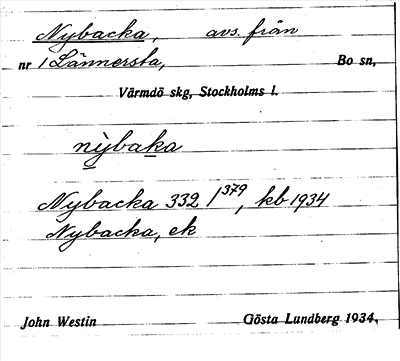 Nybacka, avs. från
nr 1 Lännersta, Bo sn,
Värmdö skg, Stockholms l.
nỳbaka
Nybacka 332 1/379, kb 1934
Nybacka, ek
John Westin Gösta Lundberg 1934.